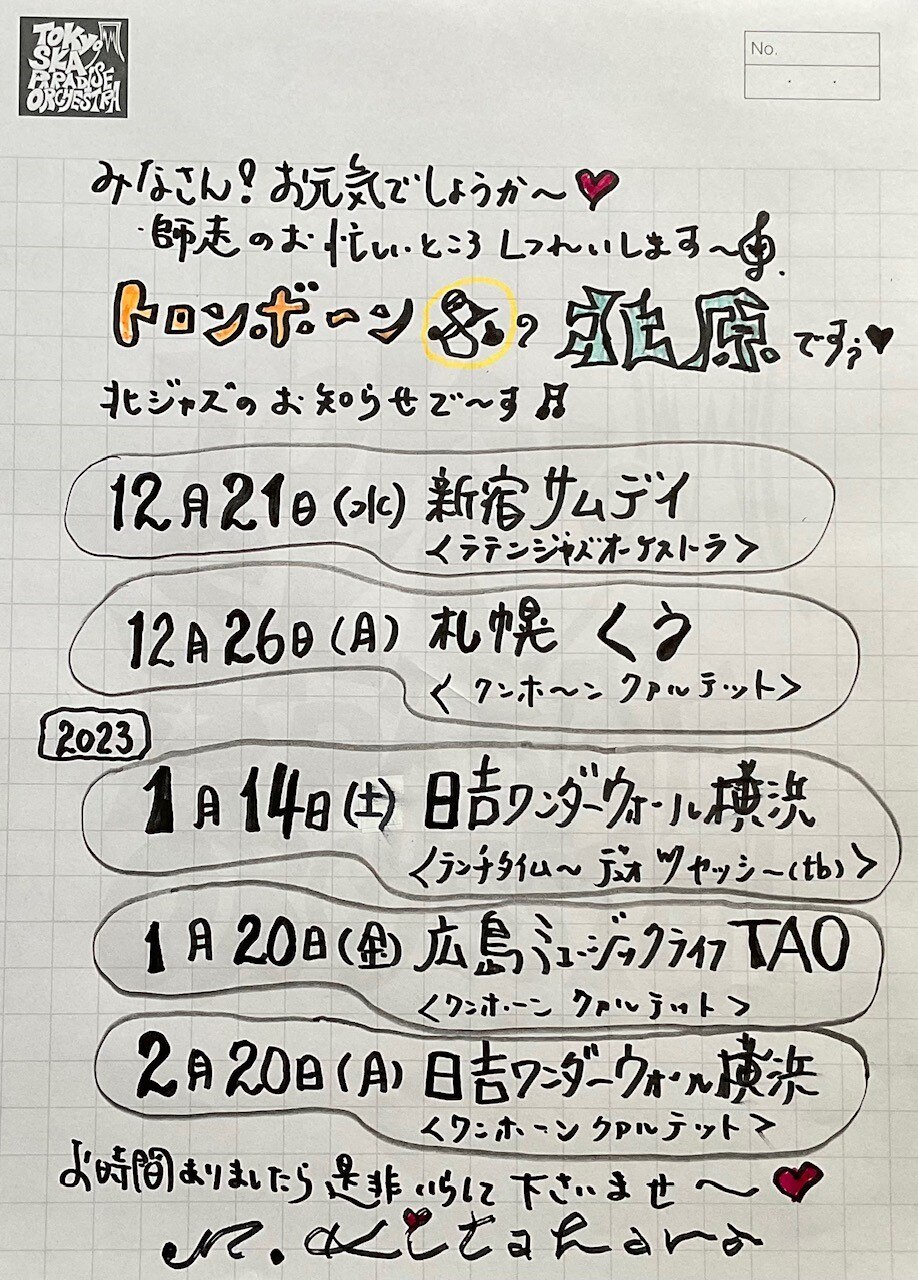 TOKYO
SKA
PARADISE
ORCHESTRA
No.
みなさん!お元気でしょうか〜♥
師走のお忙しいところしつれいします〜
トロンボーンの北原です♥
北ジャズのお知らせで〜す♬
12月21日(水) 新宿サムデイ
<ラテンジャズオーケストラ>
12月26日(月) 札幌 くう
<ワンホーン クァルテット>
2023
1月14日(土) 日吉ワンダーウォール横浜
<ランチタイム〜 デュオ ツヤッシー(tb)>
1月20日(金) 広島ミュージックライフTAO
<ワンホーン クァルテット>
2月20日(月) 日吉ワンダーウォール横浜
<ワンホーン クァルテット>
お時間ありましたら是非いらして下さいませ〜♥
N. Kitahara